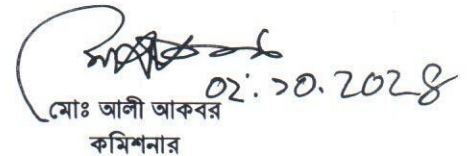 ০২.১০.২০২৪
মোঃ আলী আকবর
কমিশনার